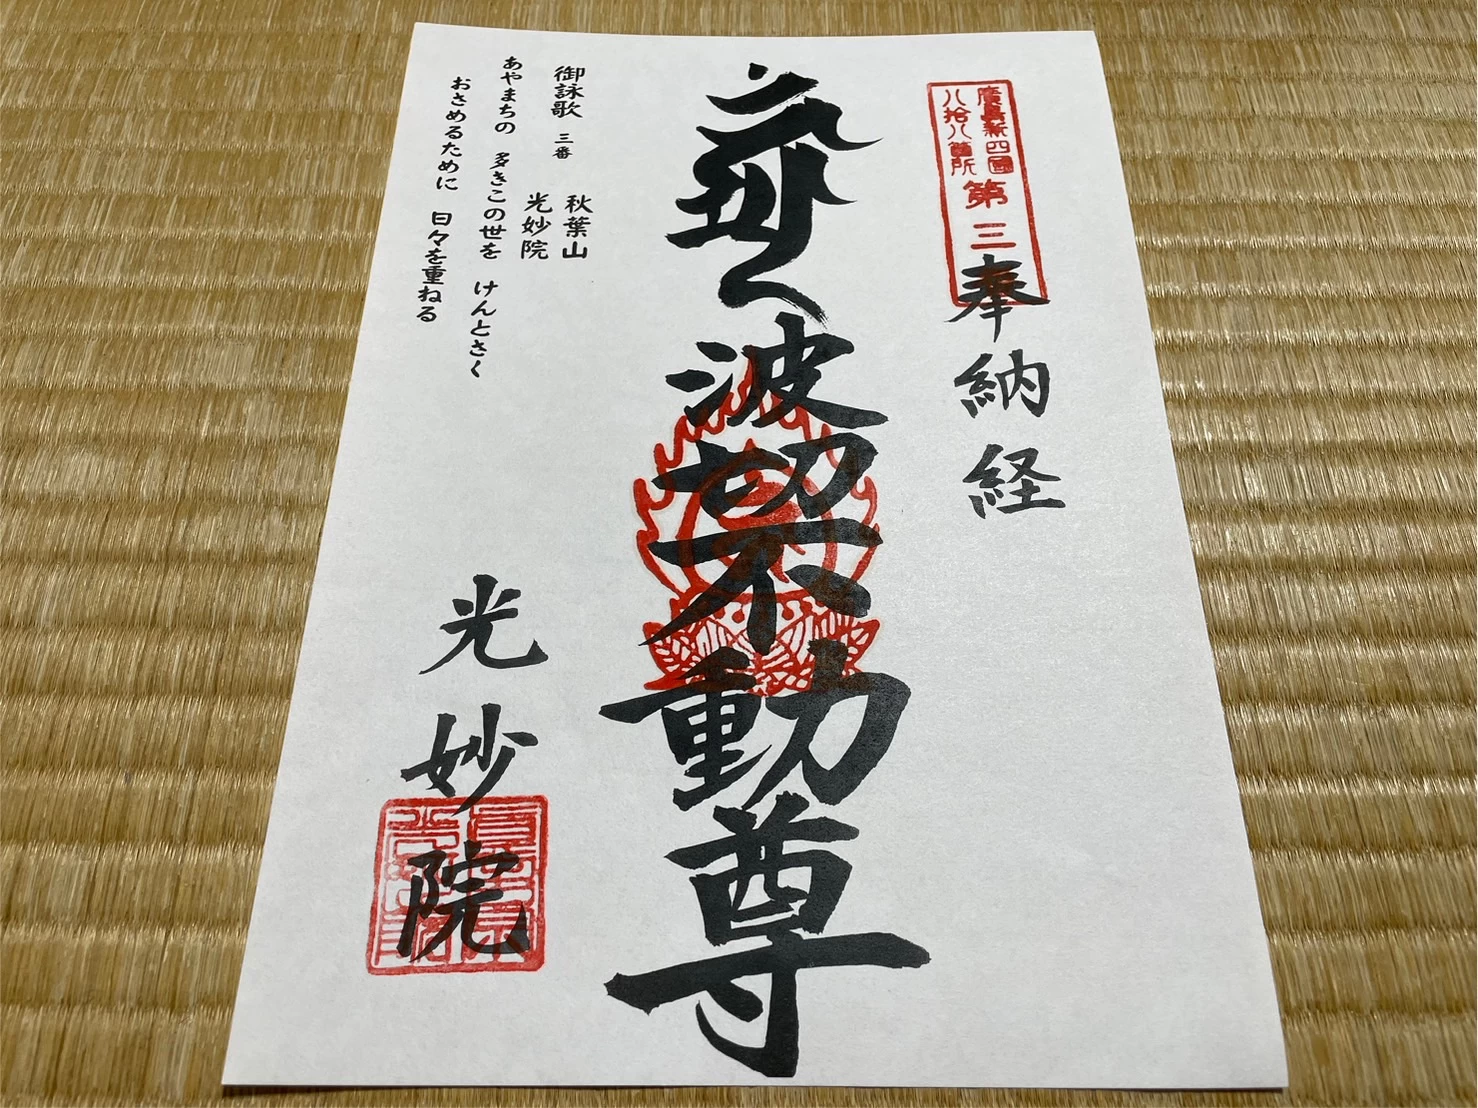 廣島新四國
八拾八箇所
第三
奉納経
波切不動尊
御詠歌 三番
秋葉山
光妙院
あやまちの 多きこの世を けんとさく
おさめるために 日々を重ねる
光妙院